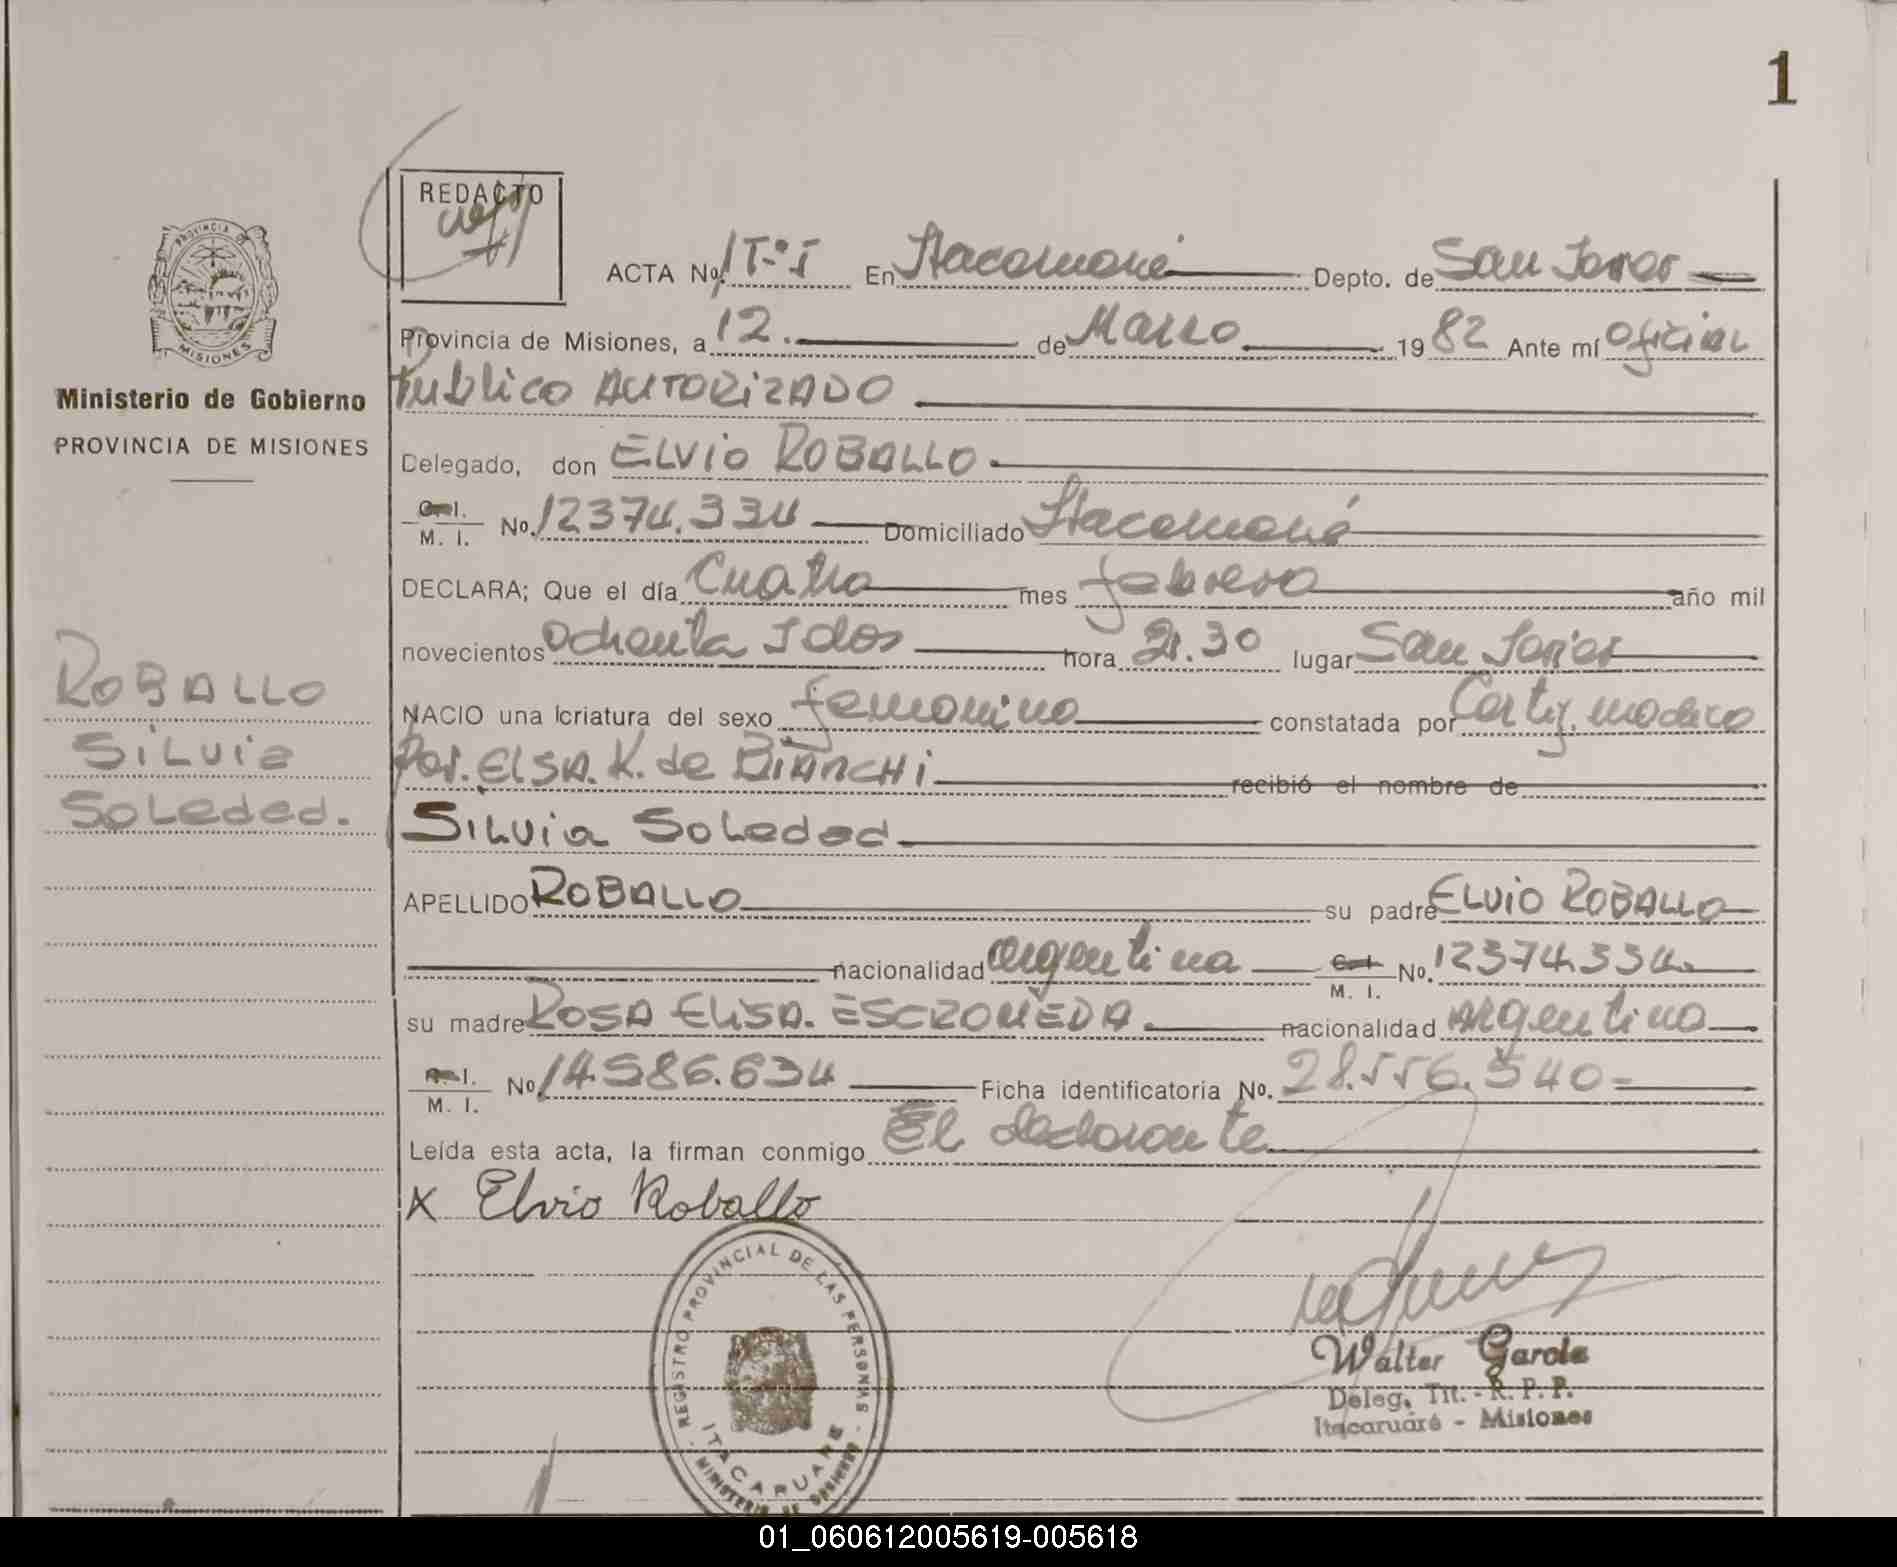 1
REDACTO
ACTA Nº 1 T-º I En Itacaruaré Depto. de San Javier
Provincia de Misiones, a 12. de Marzo 1982 Ante mí oficial
Publico AUTORIZADO
Delegado, don ELVIO ROBALLO
C. I.
M. I. Nº. 12374.334 Domiciliado Itacaruaré
DECLARA; Que el día Cuatro mes febrero año mil
novecientos ochenta y dos hora 21.30 lugar San Javier
NACIO una criatura del sexo femenino constatada por Certif. medico
Por. ELSA. K. de BIANCHI recibió el nombre de
SILVIA SOLEDAD
APELLIDO ROBALLO su padre ELVIO ROBALLO
nacionalidad argentina C. I.
M. I. Nº. 12374.334
su madre ROSA ELISA. nacionalidad Argentina
C. I.
M. I. Nº 14.586.634 Ficha identificatoria Nº. 28.556.540=
Leída esta acta, la firman conmigo El declarante
X Elvio Roballo
Walter García
Deleg. Tit. - R. P. P.
Itacaruaré - Misiones
REGISTRO PROVINCIAL DE LAS PERSONAS
ITACARUARE
MINISTERIO DE GOBIERNO
PROVINCIA DE
MISIONES
Ministerio de Gobierno
PROVINCIA DE MISIONES
ROBALLO
SILVIA
SOLEDAD.
01_060612005619-005618